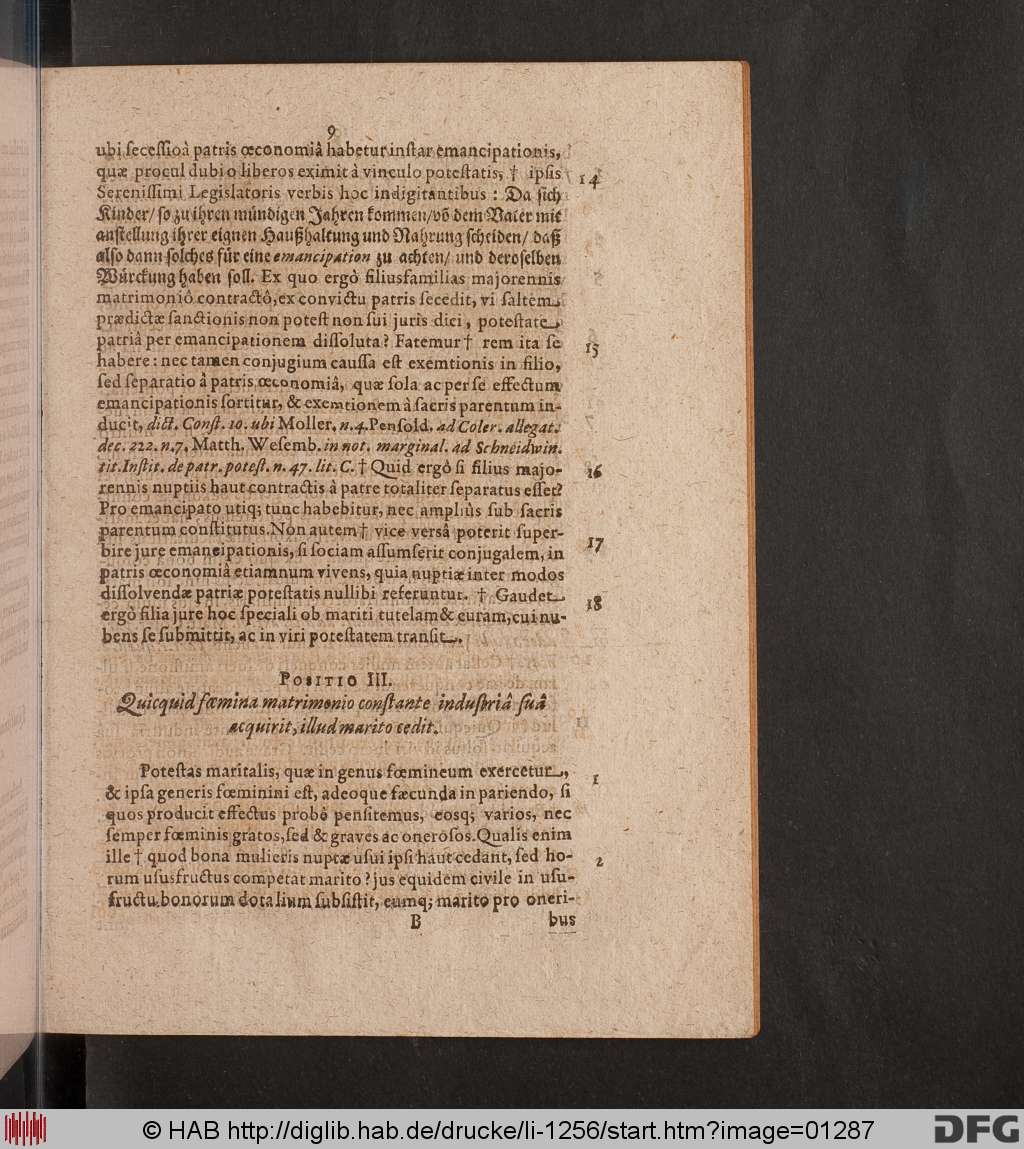 9
ubi secessio à patris œconomiâ habetur instar emancipationis,
quæ procul dubio liberos eximit à vinculo potestatis, † ipsis 14
Serenissimi Legislatoris verbis hoc indigitantibus : Da sich
Kinder/ so zu ihren mündigen Jahren kommen/ võ dem Vater mit
anstellung ihrer eignen Haußhaltung und Nahrung scheiden/ daß
also dann solches für eine emancipation zu achten/ und deroselben
Würckung haben soll. Ex quo ergò filiusfamilias majorennis
matrimoniô contractô, ex convictu patris secedit, vi saltem
prædictæ sanctionis non potest non sui juris dici, potestate
patriâ per emancipationem dissoluta? Fatemur † rem ita se 15
habere: nec tamen conjugium caussa est exemtionis in filio,
sed separatio â patris œconomiâ, quæ sola ac per se effectum
emancipationis sortitur, & exemtionem â sacris parentum in-
ducit, dict. Const. 10. ubi Moller. n. 4. Pensold. ad Coler. allegat.
dec. 222. n. 7. Matth. Wesemb. in not. marginal. ad Schneidwin.
tit. Instit. de patr. potest. n. 47. lit. C. † Quid ergò si filius majo- 16
rennis nuptiis haut contractis à patre totaliter separatus esset?
Pro emancipato utiq; tunc habebitur, nec ampliùs sub sacris
parentum constitutus. Non autem † vice versâ poterit super- 17
bire jure emancipationis, si sociam assumserit conjugalem, in
patris œconomiâ etiamnum vivens, quia nuptiæ inter modos
dissolvendæ patriæ potestatis nullibi referuntur. † Gaudet 18
ergò filia jure hoc speciali ob mariti tutelam & curam, cui nu-
bens se submittit, ac in viri potestatem transit.
POSITIO III.
Quicquid fœmina matrimonio constante industriâ suâ
acquirit, illud marito cedit.
Potestas maritalis, quæ in genus fœmineum exercetur, 1
& ipsa generis fœminini est, adeoque fæcunda in pariendo, si
quos producit effectus probè pensitemus, eosq; varios, nec
semper fœminis gratos, sed & graves ac onerosos. Qualis enim
ille † quod bona mulieris nuptæ usui ipsi haut cedant, sed ho- 2
rum ususfructus competat marito? jus equidem civile in usu-
fructu bonorum dotalium subsistit, eumq; marito pro oneri-
B bus
© HAB http://diglib.hab.de/drucke/li-1256/start.htm?image=01287
DFG